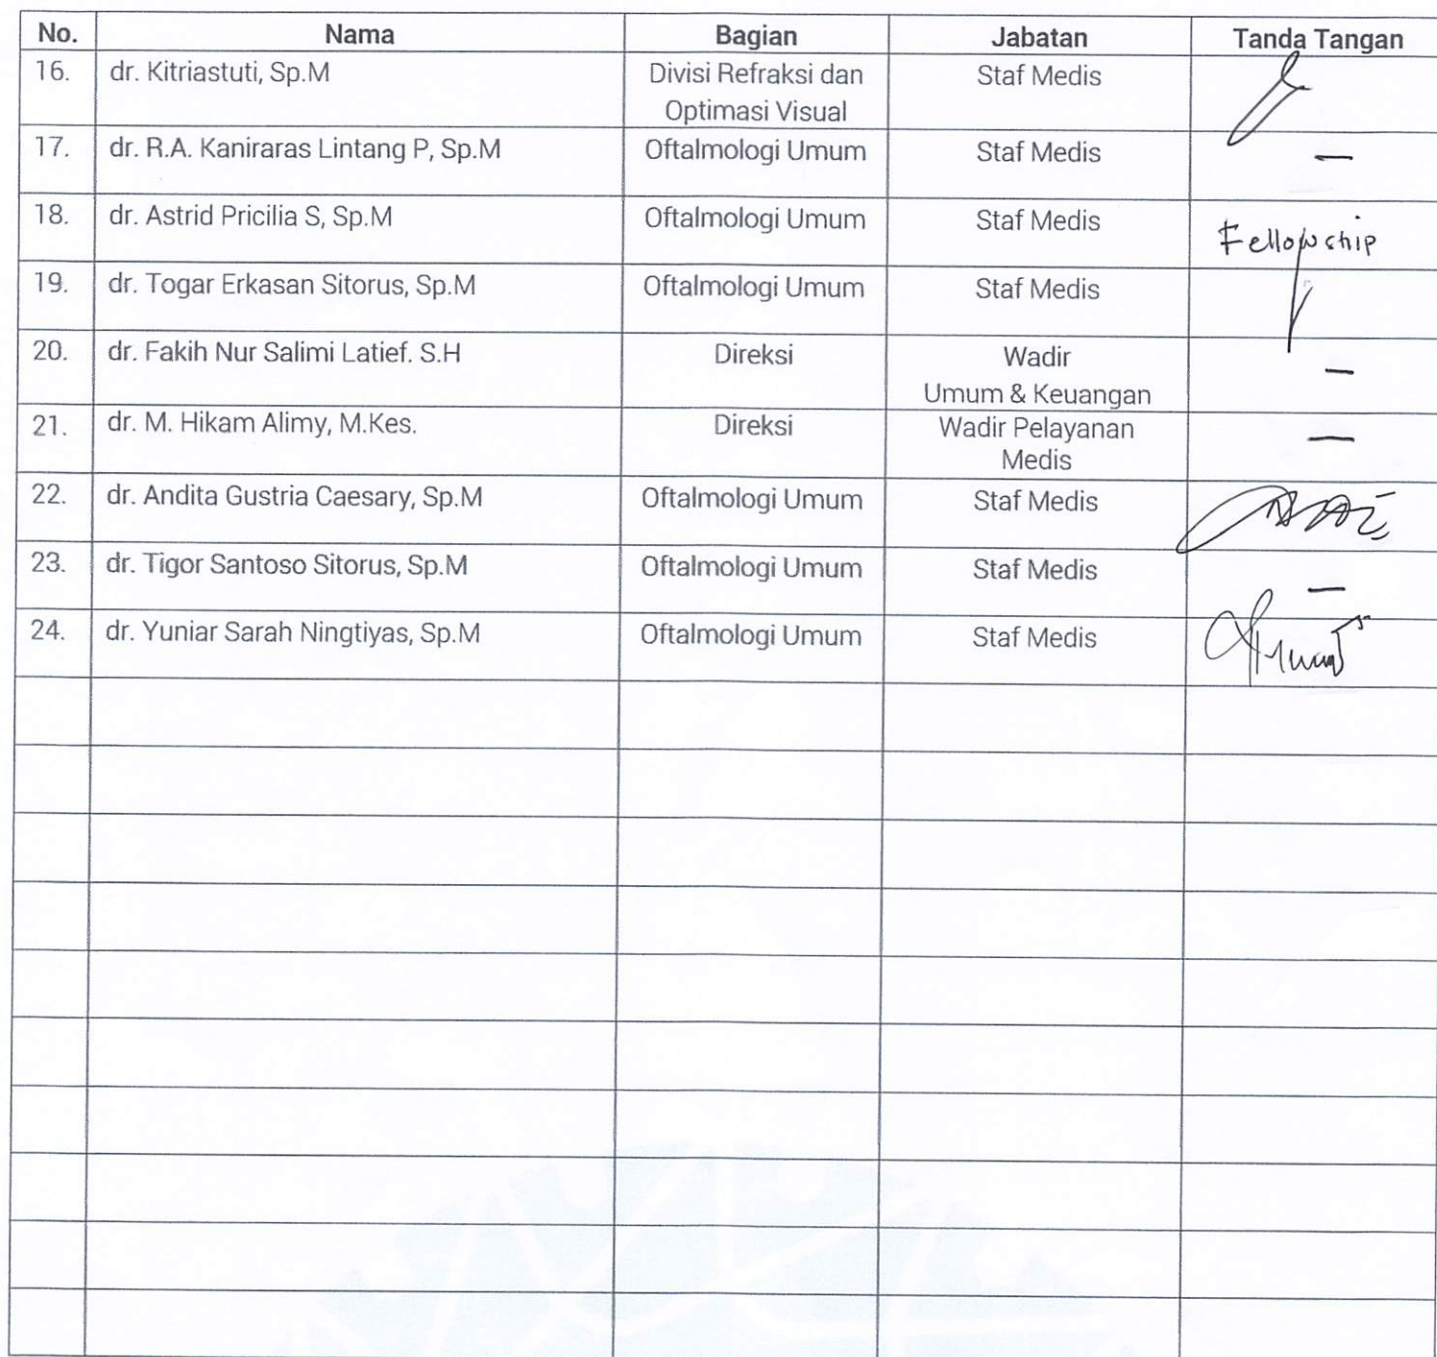 No. Nama Bagian Jabatan Tanda Tangan
16. dr. Kitriastuti, Sp.M Divisi Refraksi dan Staf Medis
Optimasi Visual
17. dr. R.A. Kaniraras Lintang P, Sp.M Oftalmologi Umum Staf Medis —
18. dr. Astrid Pricilia S, Sp.M Oftalmologi Umum Staf Medis Fellowship
19. dr. Togar Erkasan Sitorus, Sp.M Oftalmologi Umum Staf Medis
20. dr. Fakih Nur Salimi Latief. S.H Direksi Wadir —
Umum & Keuangan
21. dr. M. Hikam Alimy, M.Kes. Direksi Wadir Pelayanan —
Medis
22. dr. Andita Gustria Caesary, Sp.M Oftalmologi Umum Staf Medis
23. dr. Tigor Santoso Sitorus, Sp.M Oftalmologi Umum Staf Medis —
24. dr. Yuniar Sarah Ningtiyas, Sp.M Oftalmologi Umum Staf Medis